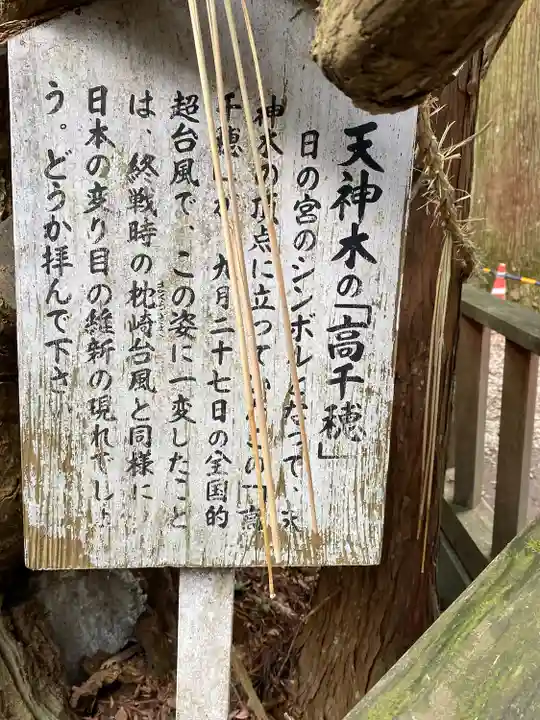 天神木の「高千穂」
日の宮のシンボルとなって、永
神木の頂点に立ってい この「高
千穂 九月二十七日の全国的
超台風で、この姿に一変したこと
は、終戦時の枕崎台風と同様に、
日本の変り目の維新の現れでしょ
う。どうか拝んで下さい